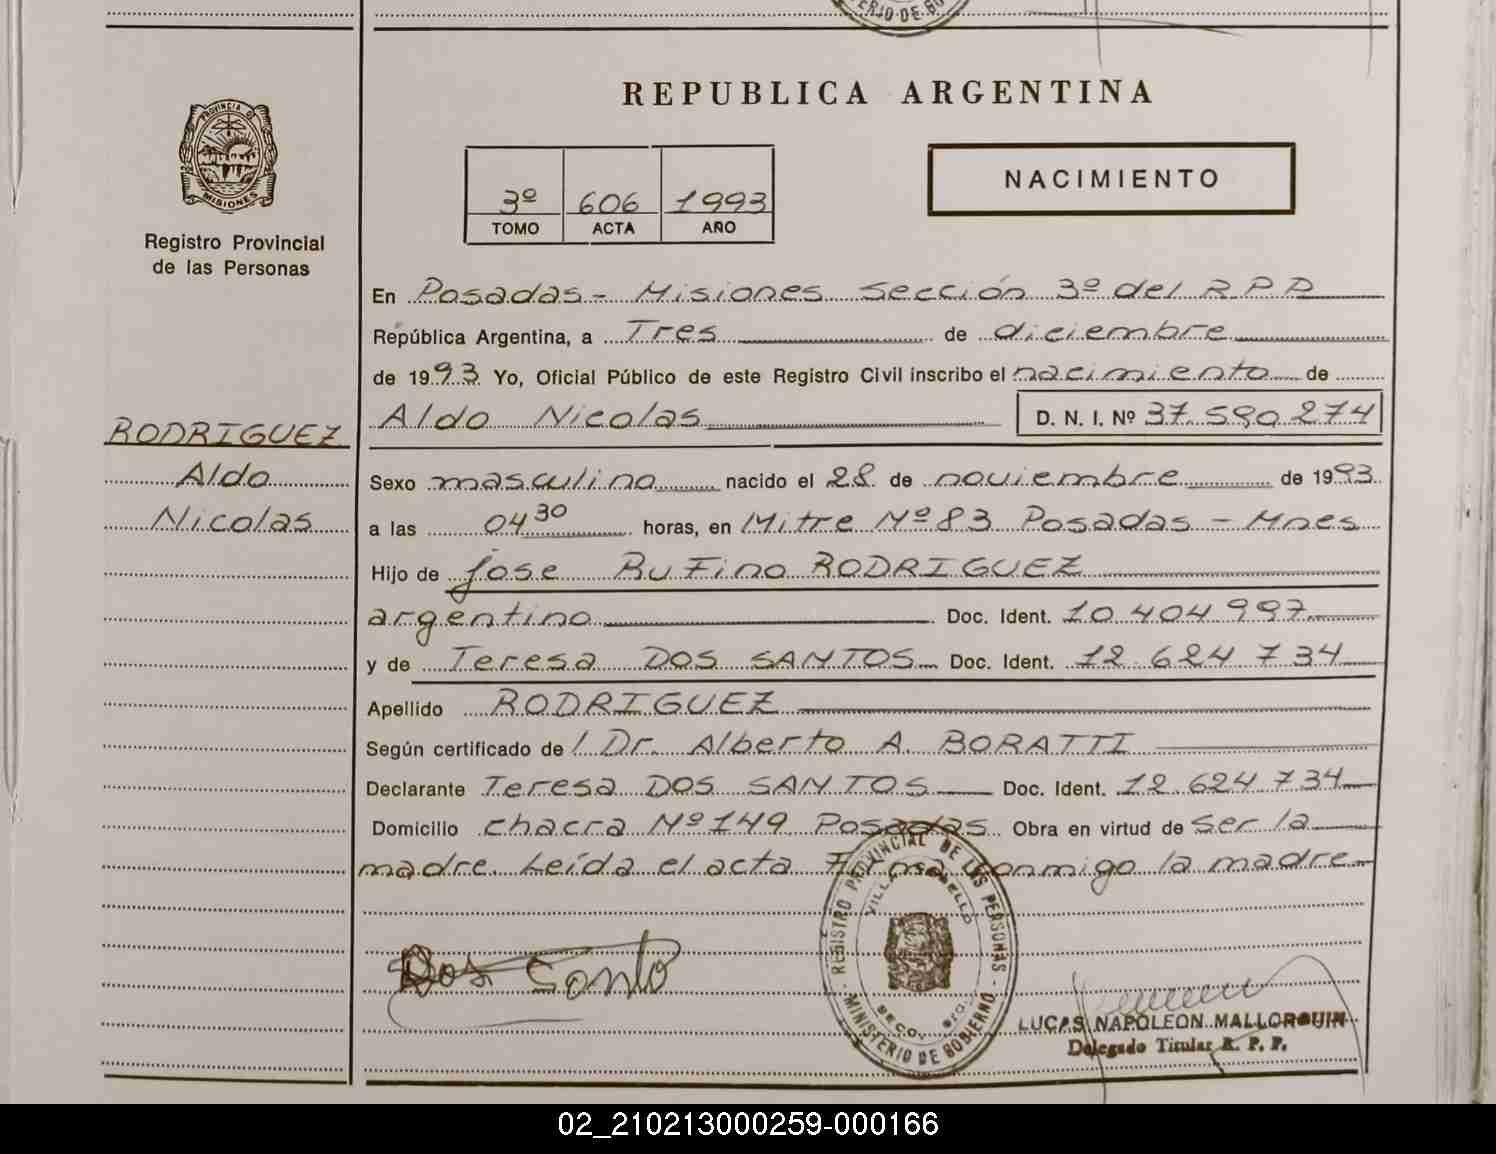 MINISTERIO DE GOBIERNO
REPUBLICA ARGENTINA
PROVINCIA DE
MISIONES
Registro Provincial
de las Personas
3º 606 1993
TOMO ACTA AÑO
NACIMIENTO
RODRIGUEZ
Aldo
Nicolas
En Posadas - Misiones Sección 3º del R P P
República Argentina, a Tres de diciembre
de 1993 Yo, Oficial Público de este Registro Civil inscribo el nacimiento de
Aldo Nicolas D. N. I. Nº 37.590.274
Sexo masculino nacido el 28 de noviembre de 1993
a las 04 30 horas, en Mitre Nº 83 Posadas - Mnes
Hijo de Jose Rufino RODRIGUEZ
argentino Doc. Ident. 10.404.997
y de Teresa DOS SANTOS Doc. Ident. 12.624.734
Apellido RODRIGUEZ
Según certificado de / Dr. Alberto A. BORATTI
Declarante Teresa DOS SANTOS Doc. Ident. 12.624.734
Domicilio chacra Nº 149 Posadas Obra en virtud de ser la
madre. Leída el acta Firma conmigo la madre
REGISTRO PROVINCIAL DE LAS PERSONAS
MINISTERIO DE GOBIERNO
Dos Santo
LUCAS NAPOLEON MALLORQUIN
Delegado Titular R. P. P.
02_210213000259-000166